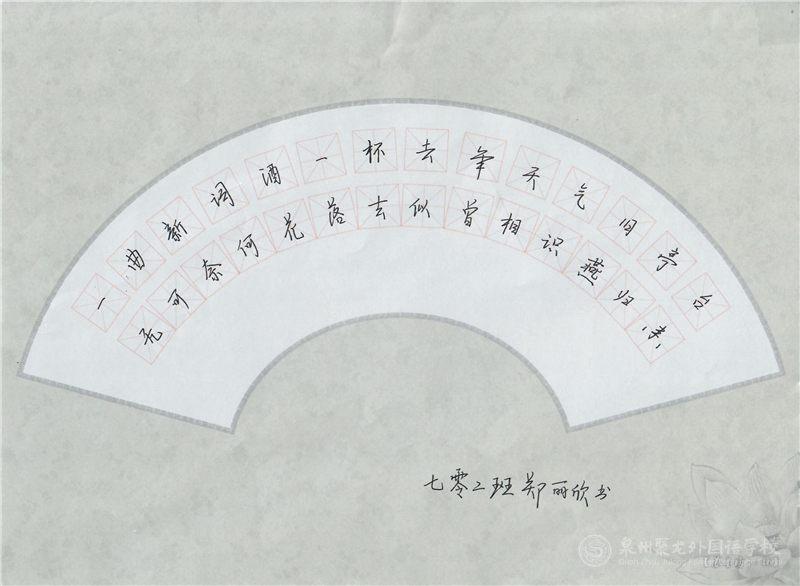 一曲新词酒一杯去年天气旧亭台
无可奈何花落去似曾相识燕归来
七零二班 郑丽欣书
泉州聚龙外国语学校